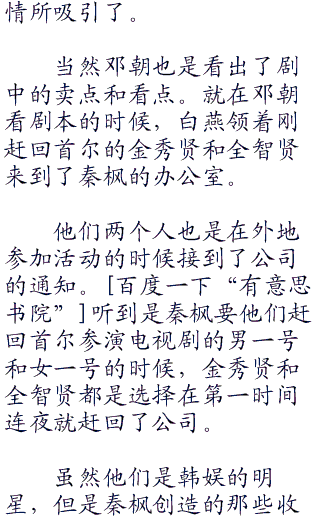 情所吸引了。
当然邓朝也是看出了剧
中的卖点和看点。就在邓朝
看剧本的时候，白燕领着刚
赶回首尔的金秀贤和全智贤
来到了秦枫的办公室。
他们两个人也是在外地
参加活动的时候接到了公司
的通知。[百度一下“有意思
书院”]听到是秦枫要他们赶
回首尔参演电视剧的男一号
和女一号的时候，金秀贤和
全智贤都是选择在第一时间
连夜就赶回了公司。
虽然他们是韩娱的明
星，但是秦枫创造的那些收